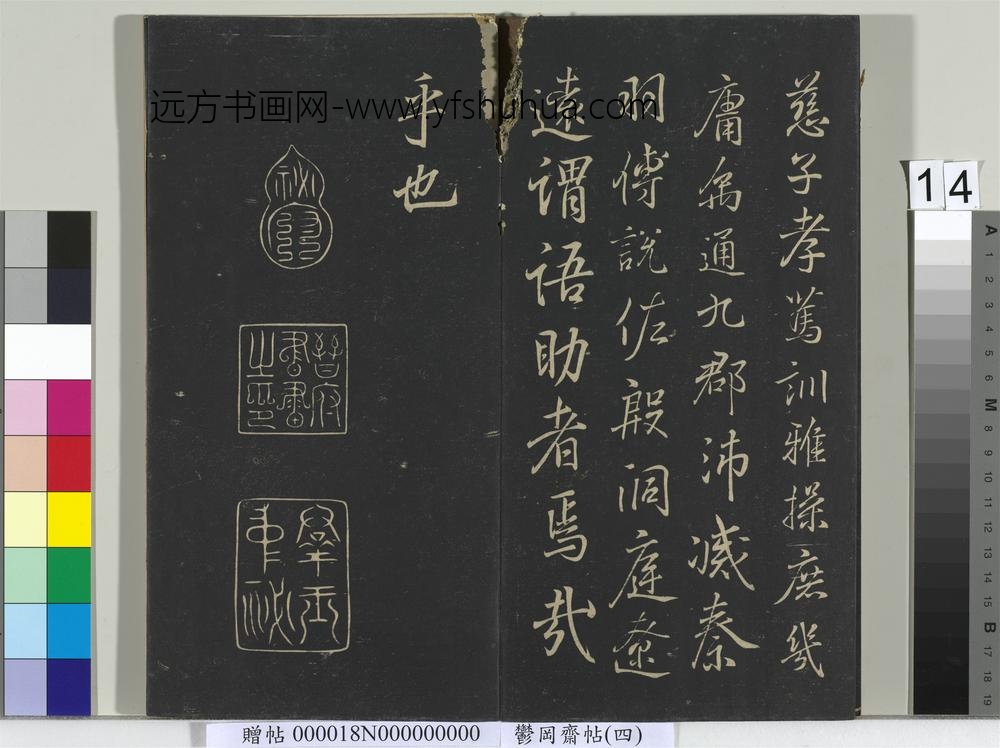 慈子孝箴訓雅操庶幾
庸爲通九郡沛滅秦
羽傅說佐殷洞庭遼
遠謂語助者焉哉
乎也
晉府
書畫
之印
远方书画网-www.yfshuhua.com
14
贈帖 000018N000000000
鬱岡齋帖(四)
A 1 2 3 4 5 6 M 8 9 10 11 12 13 14 15 B 17 18 19